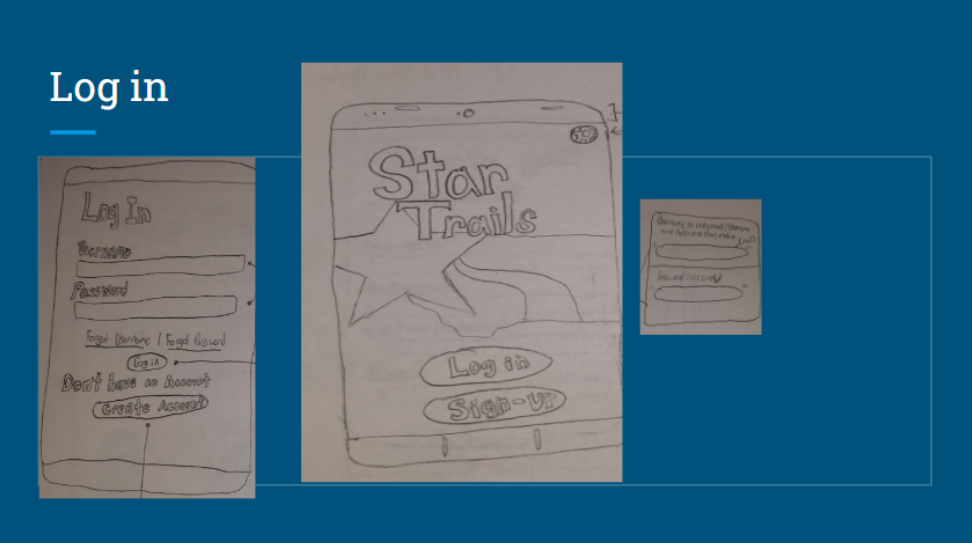 Log in
Log In
Username
Password
Forgot Username / Forgot Password
Log in
Don't have an Account
Create Account
Star
Trails
Log in
Sign-up
Username is incorrect /
Password Incorrect